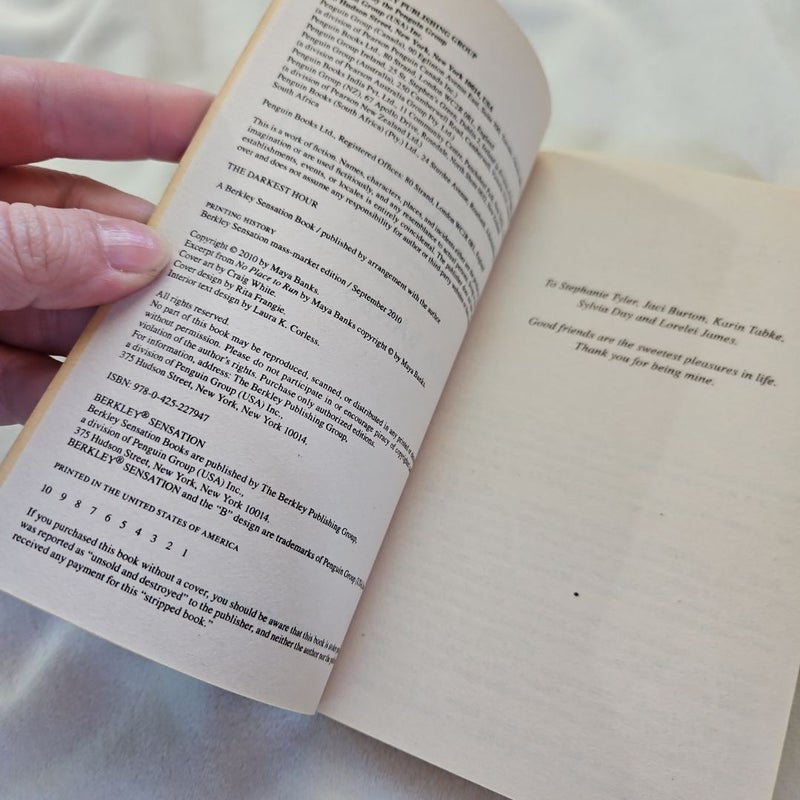 PUBLISHING GROUP
the Penguin Group
Hudson Street, New York, New York 10014, USA
Penguin Group (Canada), 90
Penguin Books Ltd., 80 Strand, London WC2R 0RL, England
Penguin Group Ireland, 25 St. Stephen's Green,
Penguin Group (Australia), 250 Camberwell Road,
Penguin Books India Pvt. Ltd., 11 Community Centre,
Penguin Group (NZ), 67 Apollo Drive,
(a division of Pearson New Zealand Ltd.)
Penguin Books (South Africa) (Pty.) Ltd., 24 Sturdee Avenue,
South Africa
Penguin Books Ltd., Registered Offices: 80 Strand, London WC2R 0RL, England
This is a work of fiction. Names, characters, places, and incidents either
imagination or are used fictitiously, and any resemblance to actual persons,
establishments, events, or locales is entirely coincidental. The publisher
over and does not assume any responsibility for author or third-party
THE DARKEST HOUR
A Berkley Sensation Book / published by arrangement with the author
PRINTING HISTORY
Berkley Sensation mass-market edition / September 2010
Copyright © 2010 by Maya Banks.
Excerpt from No Place to Run by Maya Banks copyright © by Maya Banks.
Cover art by Craig White.
Cover design by Rita Frangie.
Interior text design by Laura K. Corless.
All rights reserved.
No part of this book may be reproduced, scanned, or distributed in any printed
without permission. Please do not participate in or encourage piracy of copyrighted
violation of the author's rights. Purchase only authorized editions.
For information, address: The Berkley Publishing Group,
a division of Penguin Group (USA) Inc.,
375 Hudson Street, New York, New York 10014.
ISBN: 978-0-425-22794-7
BERKLEY® SENSATION
Berkley Sensation Books are published by The Berkley Publishing Group,
a division of Penguin Group (USA) Inc.,
375 Hudson Street, New York, New York 10014.
BERKLEY® SENSATION and the "B" design are trademarks of Penguin Group (USA)
PRINTED IN THE UNITED STATES OF AMERICA
10 9 8 7 6 5 4 3 2 1
If you purchased this book without a cover, you should be aware that this book is stolen
was reported as "unsold and destroyed" to the publisher, and neither the author nor the
received any payment for this "stripped book."
To Stephanie Tyler, Jaci Burton, Karin Tabke,
Sylvia Day and Lorelei James.
Good friends are the sweetest pleasures in life.
Thank you for being mine.